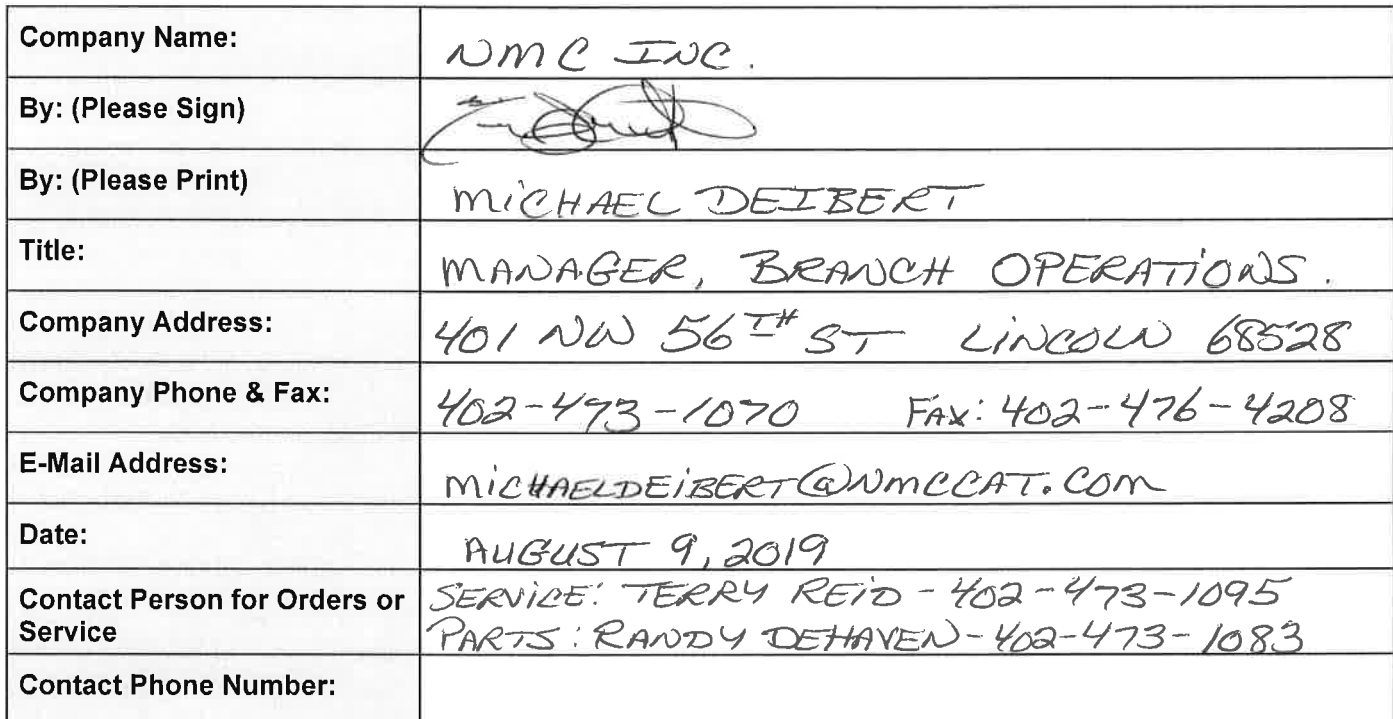 Company Name: NMC INC.
By: (Please Sign)
By: (Please Print) MiCHAEL DEIBERT
Title: MANAGER, BRANCH OPERATiONS.
Company Address: 401 NW 56TH ST LiNCOLN 68528
Company Phone & Fax: 402-473-1070 FAX: 402-476-4208
E-Mail Address: MiCHAELDEiBERT@NMCCAT.COM
Date: AUGUST 9, 2019
Contact Person for Orders or SERViCE: TERRY REiD - 402-473-1095
Service PARTS: RANDY DEHAVEN-402-473-1083
Contact Phone Number: